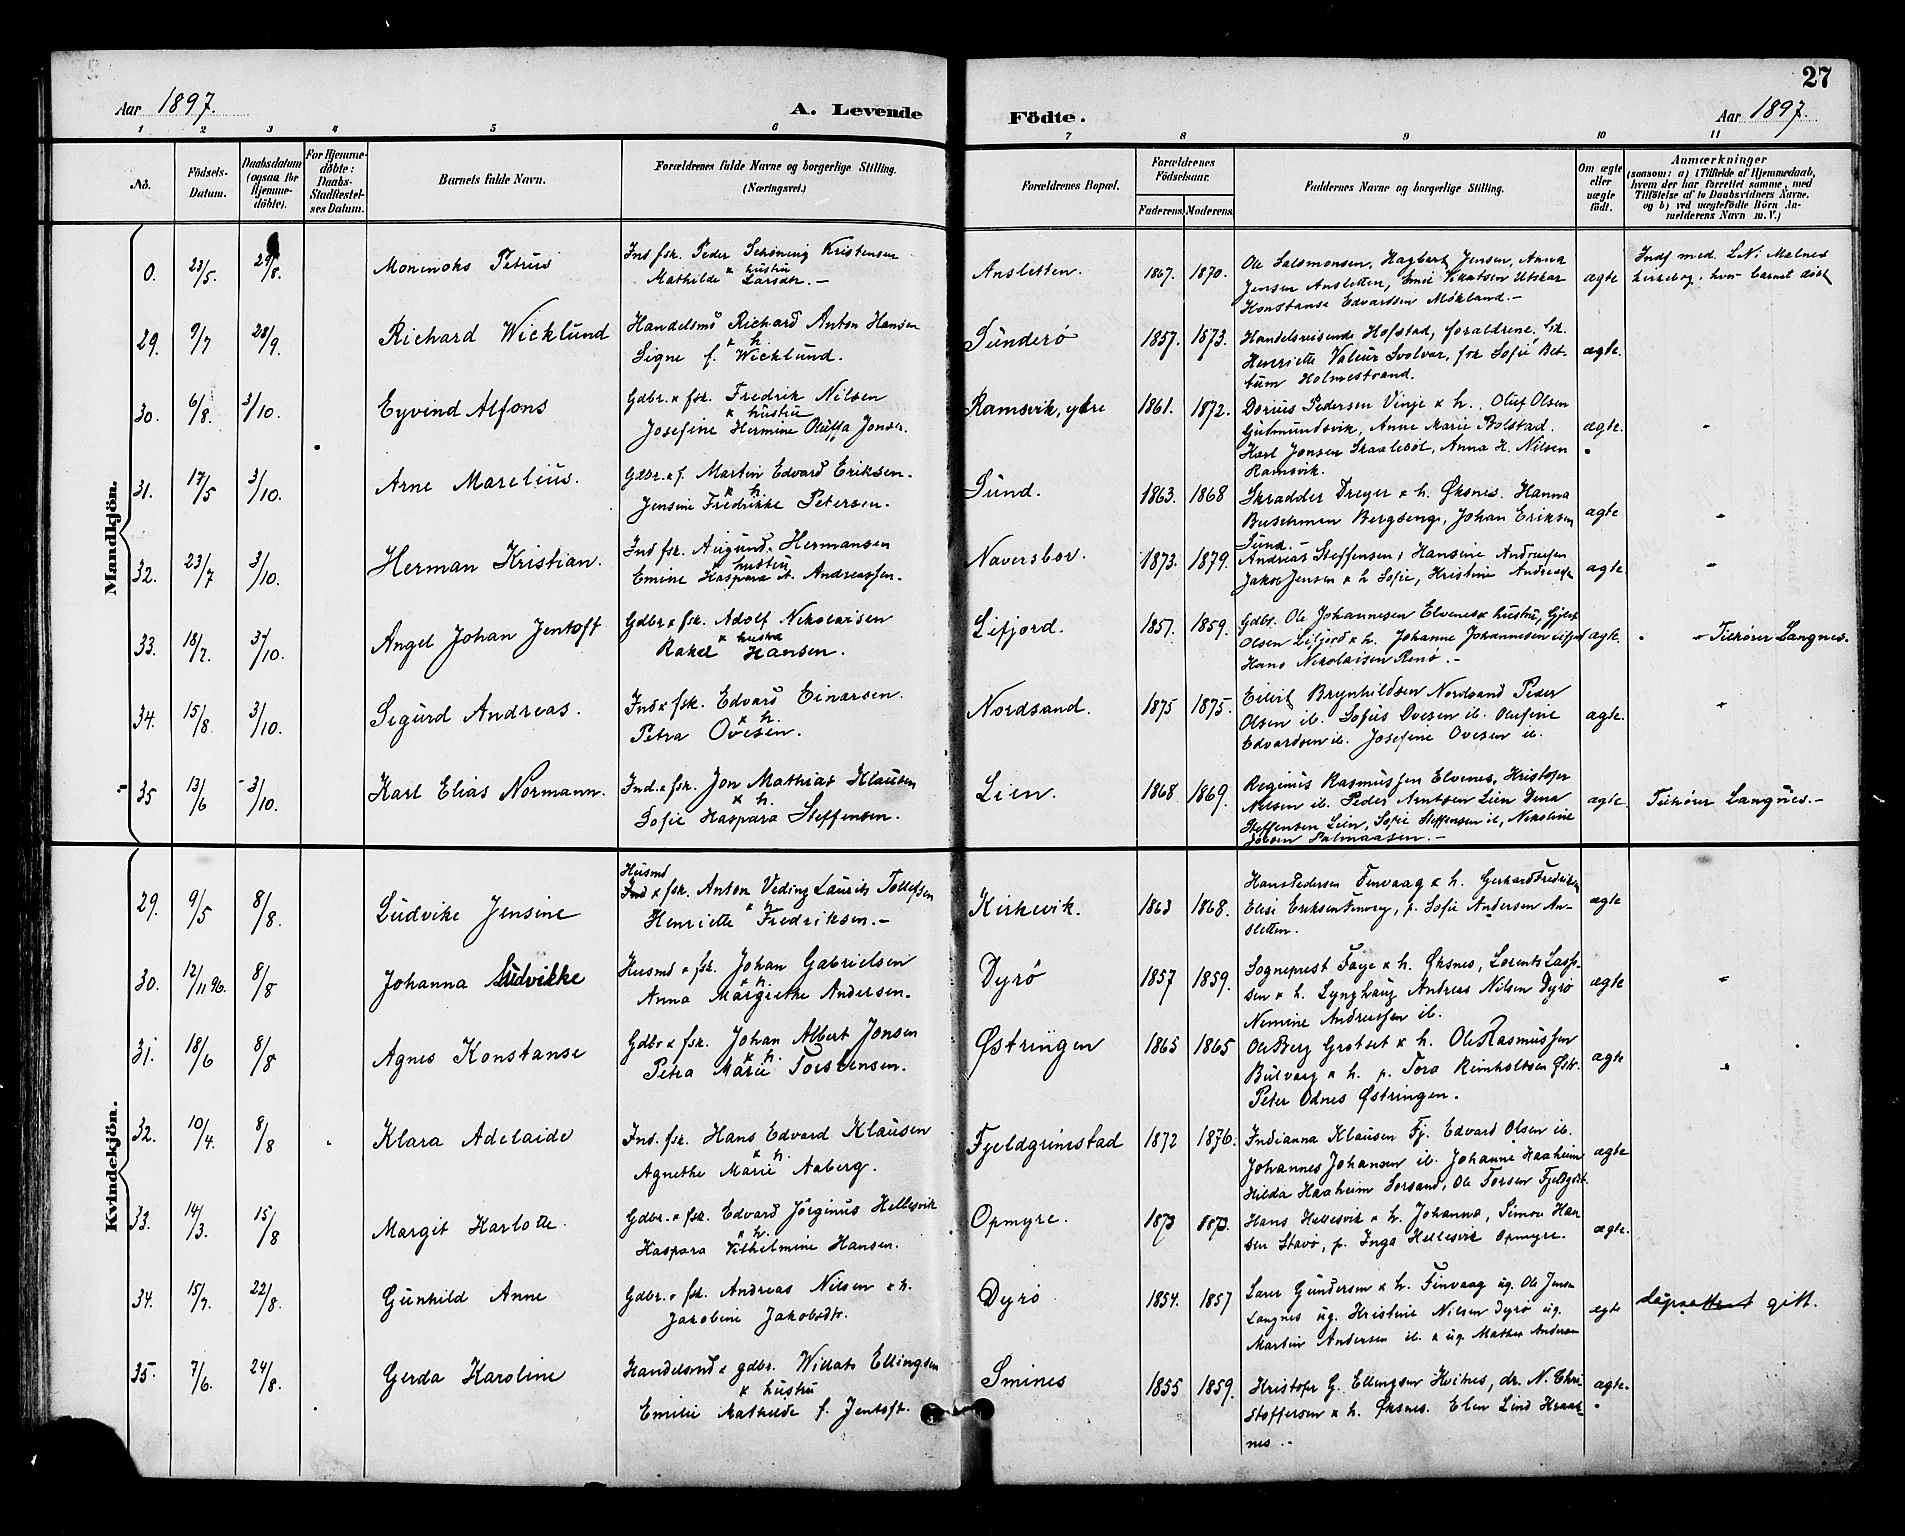 27
Aar 1897.
A. Levende
Födte.
Aar 1897.
1 2 3 4 5 6 7 8 9 10 11
No.
Födsels-
Datum.
Daabsdatum
(ogsaa for
Hjemme-
döbte).
For Hjemme-
döbte:
Daabs-
Stadfæstel-
ses Datum.
Barnets fulde Navn.
Forældrenes fulde Navne og borgerlige Stilling.
(Næringsvei.)
Forældrenes Bopæl.
Forældrenes
Födselsaar.
Faderens. Moderens.
Faddernes Navne og borgerlige Stilling.
Om ægte
eller
uægte
født.
Anmærkninger
(saasom: a) i Tilfælde af Hjemmedaab,
hvem der har forrettet samme, med
Tilföielse af to Daabsvidners Navne.
og b) ved uægtefödte Börn An-
melderens Navn m. V.)
Mandkjön.
0. 23/5. 29/8.
Petrus
Ind fsk. Peder Schöning Kristensen
x hustru
Mathilde Larsdtr. -
Ansletten. 1867. 1870.
Ole Salomonsen, Hagbart Jensen, Anna
Jensen Ansletten, Emil Utskar
Konstanse Edvardsen Mökland. -
ægte
Indf med L.N. Malnes
kirkebog, hvor barnet döbt
29. 9/7 28/9.
Richard Wicklund
Handelsmd Richard Anton Hansen
x h.
Signe f. Wicklund.
Sunderö 1857. 1873.
Handelsreisende Hofstad, forældrene,
Henriette Valeur Svolvær, frk Sofie Bet-
tum Holmestrand.
ægte.
30. 6/8. 3/10.
Eyvind Alfons
Gdbr. x fsk. Fredrik Nilsen
x hustru
Josefine Hermine Oluffa Jonsen.
Ramsvik, ytre 1861. 1872.
Dorius Pedersen Vinje x h., Oluf Olsen
Gudmundsvik, Anne Marie Bolstad.
Karl Jonsen Skaaleböl, Anna H. Nilsen
Ramsvik.
ægte.
31. 17/5 3/10.
Arne Marelius.
Gdbr. x f. Martin Edvard Eriksen.
x h.
Jensine Fredrikke Petersen.
Sund. 1863. 1868
Skrædder Dreyer x h. Øksnes. Hanna
Buschman Bergseng, Johan Eriksen
Sund.
ægte
32. 23/7 3/10.
Herman Kristian.
Ind fsk. August Hermansen
x hustru
Emine Kaspara A. Andreassen.
Naversbov. 1873. 1879.
Andreas Steffensen, Hansine Andreassen
Jakob Jensen x h Sofie, Kristine Andreassen
ægte
33. 18/7. 3/10.
Angel Johan Jentoft
Gdbr x fsk. Adolf Nikolaisen
x hustru
Rakel Hansen.
Lifjord. 1857. 1859.
Gdbr. Ole Johannesen Elvenes x hustru,
Olsen Lifjord x h. Johanne Johannesen
Hans Nikolaisen Renö. -
ægte.
Tilhörer Langnes.
34. 15/8. 3/10.
Sigurd Andreas.
Ind x fsk. Edvard Einarsen.
x h.
Petra Ovesen.
Nordsand. 1875 1875.
Eilert Brynhildsen Nordsand Peder
Olsen ib. Sofus Ovesen ib. Olufine
Edvardsen ib. Josefine Ovesen ib.
ægte.
35 13/6 3/10.
Karl Elias Normann.
Ind. x fsk. Jon Mathias Klausen
x h.
Sofie Kaspara Steffensen.
Lien. 1868 1869.
Reginus Rasmussen Elvenes, Kristofer
Nilsen ib. Peder Arntsen Lien Dina
Steffensen Lien, Sofie Steffensen ib, Nikoline
ægte
Tilhörer Langnes. -
Kvindekjön.
29. 9/5 8/8.
Ludvike Jensine
Husmd
Ind x fsk. Anton Veding Laurits Tollefsen
x h
Henriette Fredriksen. -
Kirkevik. 1863 1868.
Hans Pedersen Finvaag x h. Gerhard Fredriksen
Elise Eriksen p. Sofie Andersen An-
sletten.
ægte
30. 12/11 96. 8/8
Johanna Ludvikke
Husmd x fsk. Johan Gabrielsen
x h.
Anna Margrethe Andersen.
Dyrö 1857 1859.
Sogneprest Faye x h. Øksnes, Lorents Lasse-
sen x h. Lynghaug Andreas Nilsen Dyrö
Nemine Andreassen ib.
ægte
31. 18/6 8/8
Agnes Konstanse
Gdbr x fsk. Johan Albert Jonsen
x h.
Petra Marie Torstensen.
Østringen 1865 1865
Ole Berg Grotset x h. Ole Rasmussen
Bulvaag x h. p. Tora Reinholtsen Østr.
Peter Odnes Østringen.
ægte
32. 10/4. 8/8
Klara Adelaide
Ind. fsk. Hans Edvard Klausen
x h.
Agnethe Marie Aaberg.
Fjeldgrimstad 1872 1876.
Indianna Klausen Fj. Edvard Olsen ib.
Johannes Johansen ib. Johanne Haaheim
Hilda Haaheim Sorsand, Ole Torsen Fjeldgst.
ægte
33. 14/3. 15/8
Margit Karlotte.
Gdbr. x fsk. Edvard Jörginus Hellesvik
x h.
Kaspara Vilhelmine Hansen.
Opmyre. 1873 1873.
Hans Hellesvik x h. Johanna, Simon Han-
sen Stavö, p. Inga Hellesvik Opmyre.
ægte.
34. 15/7. 22/8.
Gunhild Anne
Gdbr. x fsk. Andreas Nilsen x h.
Jakobine Jakobsdtr.
Dyrö 1854. 1857
Lars Gundersen x h. Finvaag ug. Ole Jensen
Langnes ug. Kristine Nilsen Dyrö ug.
Martin Andersen ib. x ug. Mathea Andersen
egte
dåpsattest gitt.
35. 7/6. 24/8.
Gerda Karoline
Handelsmd x gdbr. Willats Ellingsen
x hustru
Emilie Mathilde f. Jentoft.
Smines 1855 1859.
Kristofer G. Ellingsen Hvitnes, dr. N. Chri-
stoffersen x h. Øksnes. Elen Lind Kraak-
nes.
ægte.